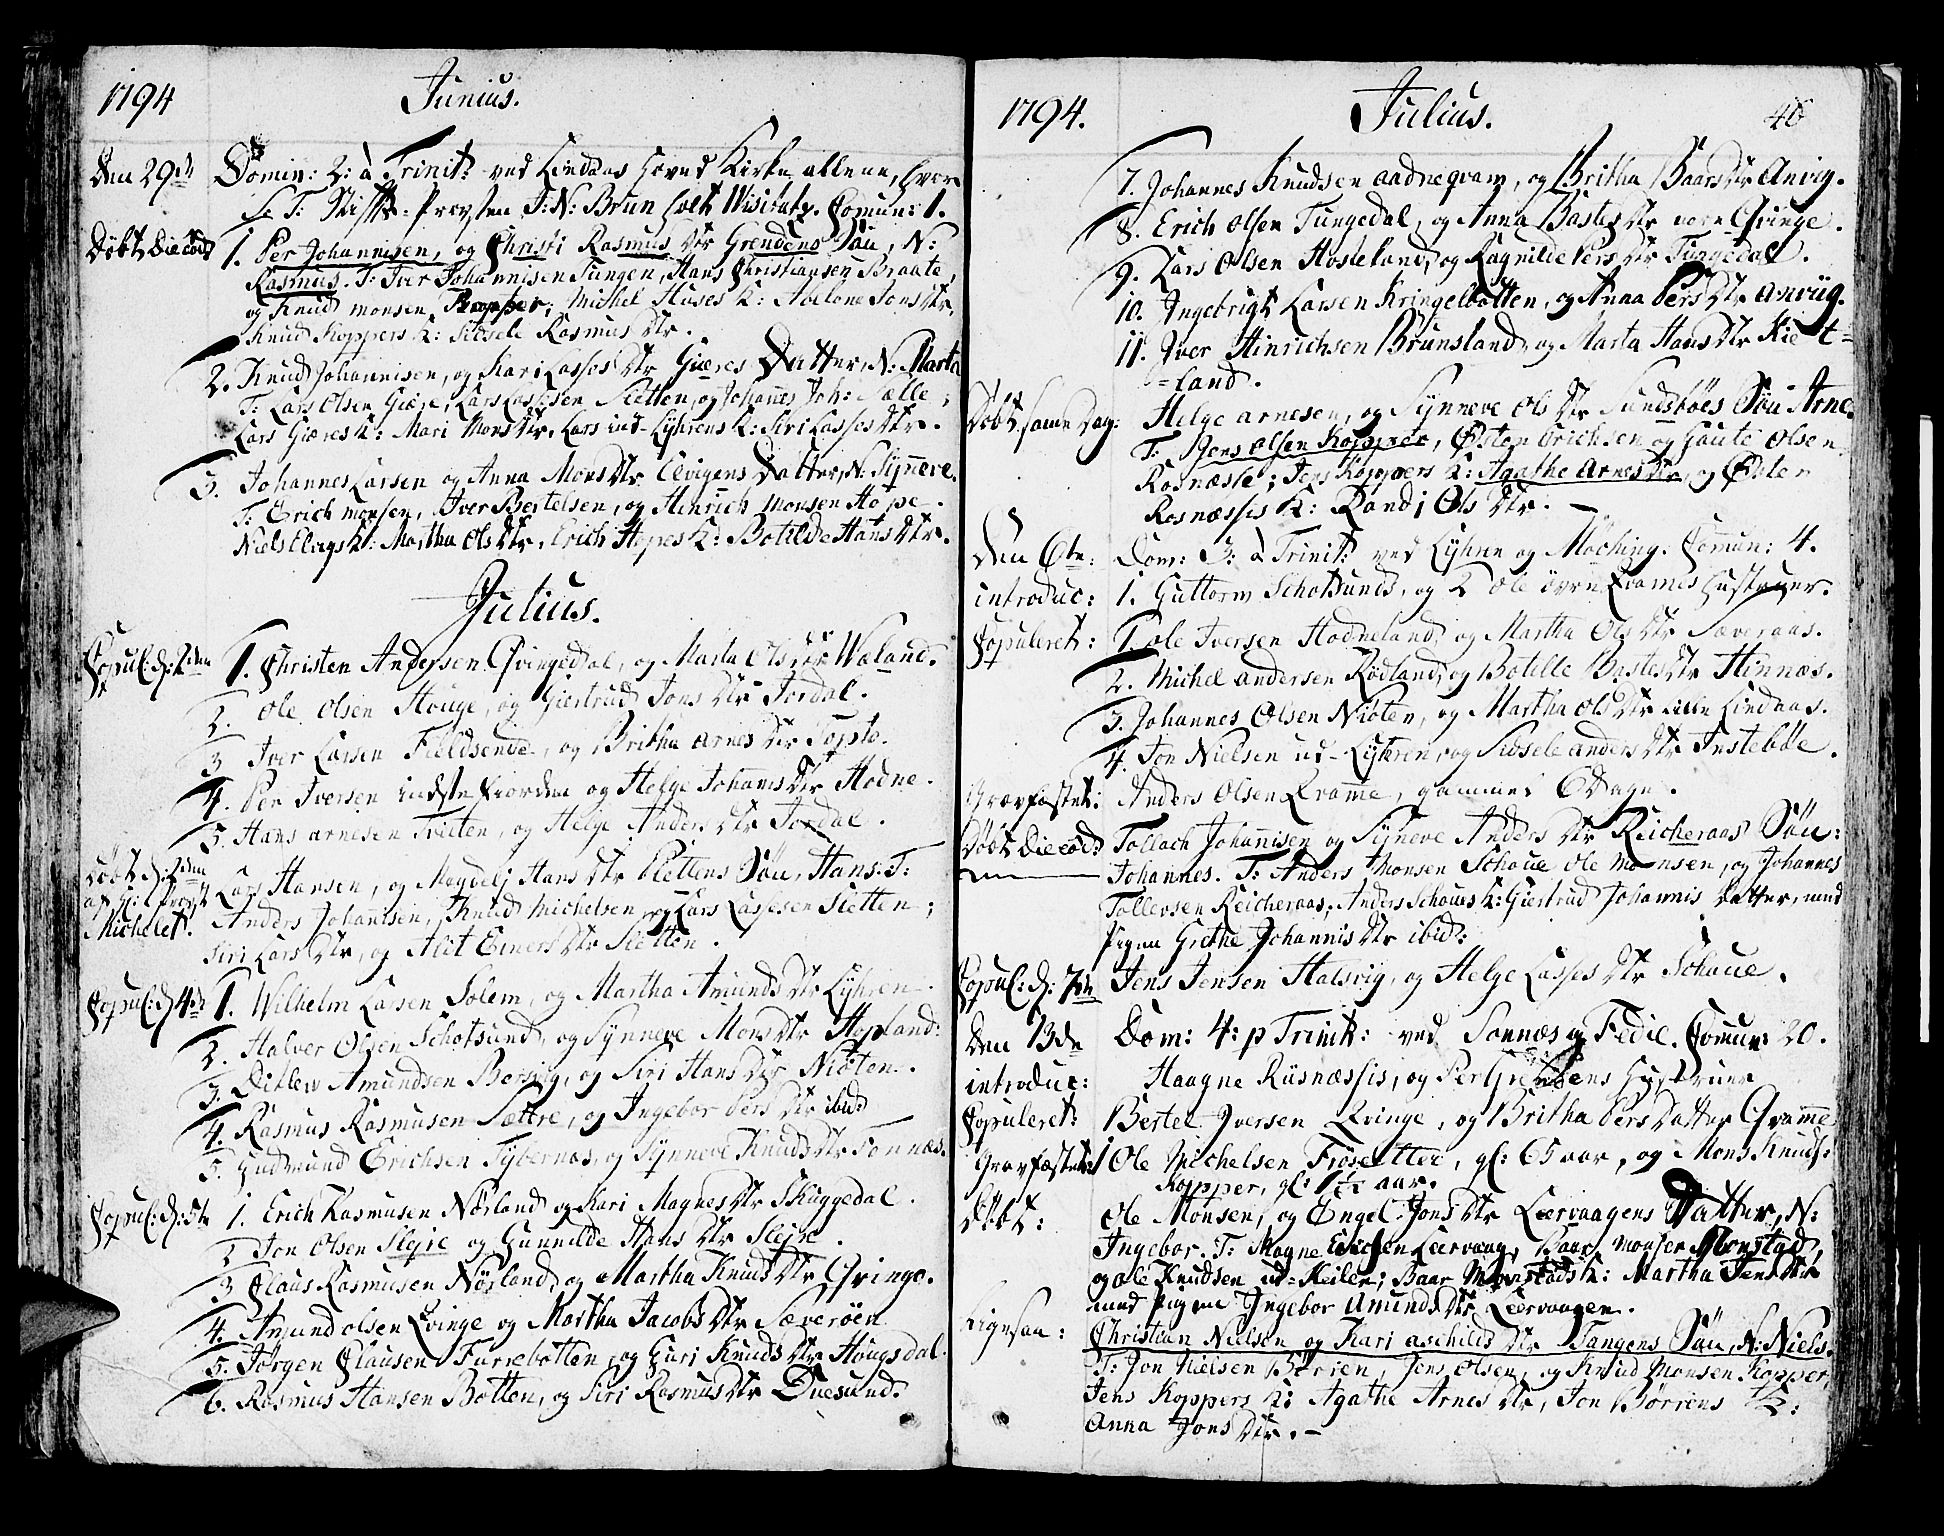 1794 Junius.
Den 29de Domin: 2: à Trinit: ved Lindaas Hoved Kirke allene, hvor
S. T: Stifts-Provsten J: N: Brun holt Visitatz. Comun: 1.
Døbt die eod: 1. Per Johannisen, og Christi Rasmus Dtr Grendens Søn, N:
Rasmus. T: Iver Johannisen Tungen, Hans Christiansen Braate,
og Knud Monsen Kopper; Michel Huses K: Abelone Jons Dtr,
Knud Koppers K: Sidsele Rasmus Dtr.
2. Knud Johannisen, og Kari Lasses Dtr Giæres Datter, N: Marta
T: Lars Olsen Giære, Lars Lassesen Sletten, og Johannes Joh: Sælle;
Lars Giæres K: Mari Mons Dtr, Lars ind-Lyhrens K: Siri Lasses Dtr.
3. Johannes Larsen og Anna Mons Dtr Elvigens Datter, N: Synneve.
T: Erich Monsen, Iver Bertelsen, og Hinrich Monsen Hope.
Niels Elvigs K: Martha Ols Dtr, Erich Hopes K: Botilde Hans Dtr.
Julius.
Copul: d: 2den 1. Christen Andersen Qvingedal, og Marta Ols Dtr Waland.
2. Ole Olsen Houge, og Giertrud Jons Dtr Jordal.
3 Iver Larsen Fieldsende, og Britha Arnes Dtr Topto.
4. Per Iversen indste Fiorden og Helge Johannis Dtr Hodne.
5. Hans Arnesen Tveten, og Helge Anders Dtr Jordal.
Døbt d: 2den Lars Hansen, og Magdeli Hans Dtr Slettens Søn, Hans. T:
af Hr: Provst Anders Johannisen, Knud Michelsen, og Lars Lassesen Sletten;
Michelet. Siri Lars Dtr, og Alit Einers Dtr Sletten.
Copul: d: 4de 1. Wilhelm Larsen Solem, og Martha Amunds Dtr Lyhren.
2. Halver Olsen Schotsund, og Synneve Mons Dtr Hopland:
3. Ditlew Amundsen Bersvig, og Siri Hans Dtr Nióten.
4. Rasmus Rasmusen Sættre, og Ingebor Pers Dtr ibid:
5. Gudmund Erichsen Sybernæs, og Synneve Knuds Dtr Sonnæs.
Copul: d: 5te 1. Erich Rasmusen Nórland og Kari Magnes Dtr Skuggedal.
2 Jon Olsen Sleire og Gunnilde Hans Dtr Sleire.
3 Claus Rasmusen Nórland, og Martha Knuds Dtr Qvinge.
4. Amund Olsen Qvinge og Martha Jacobs Dtr Sæveröen
5. Jørgen Clausen Furrebotten, og Guri Knuds Dtr Hougsdal.
6. Rasmus Hansen Botten, og Siri Rasmus Dtr Duesund.
1794. Julius. 46
7. Johannes Knudsen Aadneqvam, og Britha Baars Dtr Anvig.
8. Erich Olsen Tungedal, og Anna Bastes Dtr Qvinge.
9. Lars Olsen Hosteland, og Ragnilde Pers Dtr Tungedal.
10. Ingebrigt Larsen Kringelbotten, og Anna Pers Dtr Anviig.
11. Iver Hinrichsen Brunsland, og Marta Hans Dtr Kiet-
-land.
Døbt samme Dag: Helge Arnesen, og Synneve Ols Dtr Sundsbøes Søn Arne.
T: Jens Olsen Kopper, Østen Erichsen og Gaute Olsen
Rosnæsse; Jens Koppers K: Agathe Arnes Dtr, og Østen
Rosnæsses K: Randi Ols Dtr.
Den 6te: Dom: 3: à Trinit: ved Lyhren og Moching. Comun: 4.
introduc: 1. Guttorm Schotsunds, og 2 Ole övre Qvames Hustruer.
Copuleret: 1. Ole Iversen Hodneland, og Martha Ols Dtr Sæveraas.
2. Michel Andersen Rødland, og Botille Bastes Dtr Hinnæs.
3. Johannes Olsen Nióten, og Martha Ols Dtr Lille Lindaas.
4. Jon Nielsen ud-Lyhren, og Sidsele Anders Dtr Instebøe.
Gravfæstet: Anders Olsen Qvamme, gammel 6 Dage.
Døbt die eod: Tollach Johannisen og Synneve Anders Dtr Reicheraas Søn:
Johannes. T: Anders Monsen Schoue Ole Monsen, og Johannes
Tollevsen Reicheraas; Anders Schoues K: Giertrud Johannis Datter, med
Pigen Grethe Johannis Dtr ibid:
Copul: d: 7de Jens Jensen Halsvig, og Helge Lasses Dtr Schoue.
Den 13de Dom: 4: p Trinit: ved Sonnæs og Fedie. Comun: 20.
introduc: Haagne Riisnæssis, og Per Grendens Hustruer
Copuleret: Bertel Iversen Qvinge, og Britha Pers Datter Qvamme
Gravfæstet: 1 Ole Michelsen Frosetter, gl: 65 aar, og Mons Knuds:
Kopper, gl: 1 1/2 aar.
Døbt: Ole Monsen, og Engel Jons Dtr Leervaagens Datter, N:
Ingebor. T: Magne Erichsen Leervaag, Baar Monsen Monstad,
og Ole Knudsen ud-Keilen; Baar Monstads K: Martha Jens Dtr
med Pigen Ingebor Amunds Dtr Leervaagen.
Ligesaa: Christian Nielsen og Kari Aschilds Dtr Tangens Søn, N: Niels.
T: Jon Nielsen Børren, Jens Olsen, og Knud Monsen Kopper,
Jens Koppers K: Agathe Arnes Dtr, Jon Børrens K:
Anna Jons Dtr.